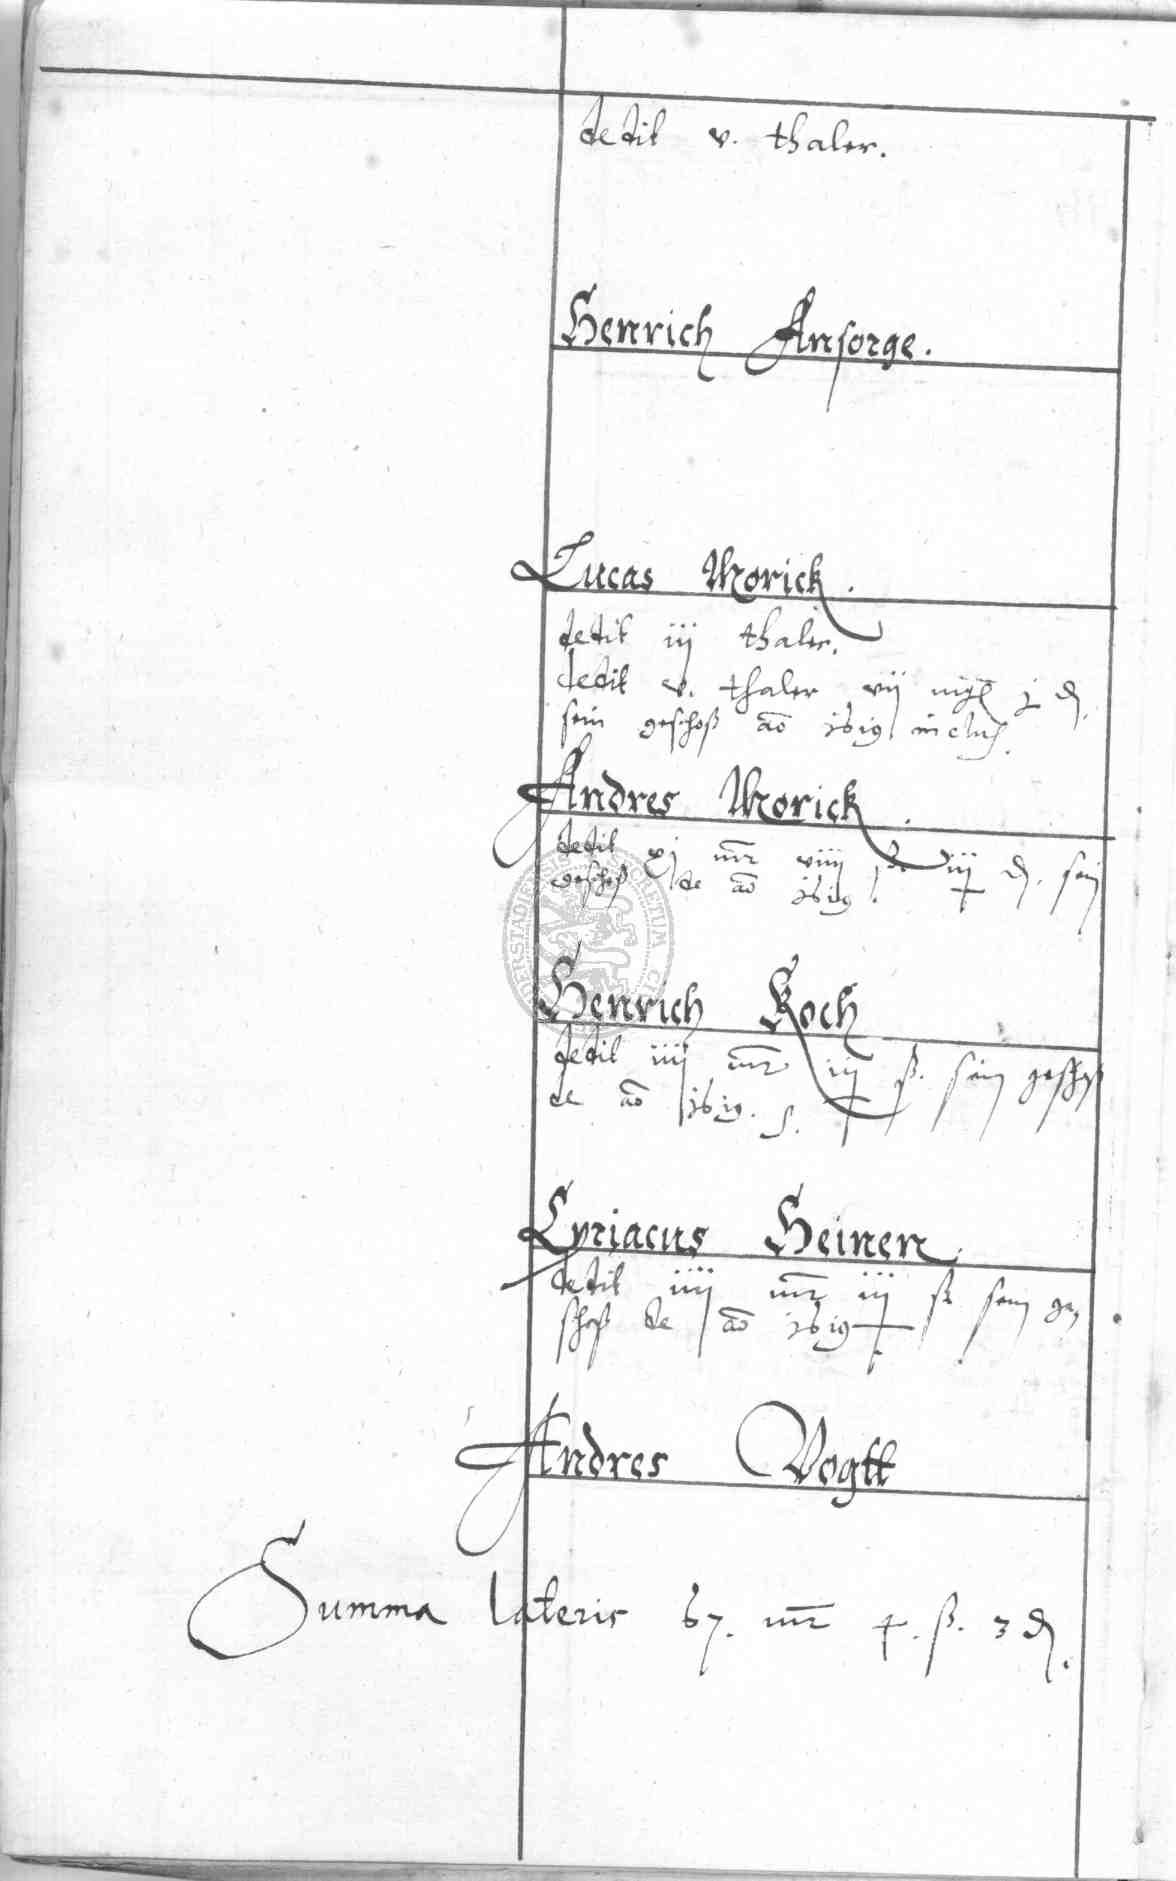 dedit v. thaler.
Henrich Ansorge.
Lucas Morick.
dedit iij thaler.
dedit v. thaler vij mgl j d.
sein geschoß ao 1619 inclus.
Andres Morick.
dedit xj mr viiij ß iij d. sein
geschoß de ao 1619.
Henrich Koch
dedit iiij mr iij ß. sein geschoß
de ao 1619.
Cyriacus Heinen.
dedit iiij mr iij ß sein ge
schoß de ao 1619
Andres Vogtt
Summa lateris 67. mr 4. ß. 3 d.